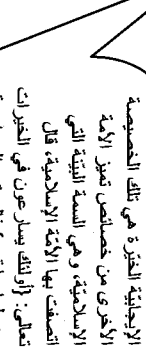 الإيجابية الخيّرة هي تلك الخصيصة
الأخرى من خصائص تميز الأمة
الإسلامية، وهي السمة البيّنة التي
اتصفت بها الأمة الإسلامية، قال
تعالى: {أولئك يسارعون في الخيرات